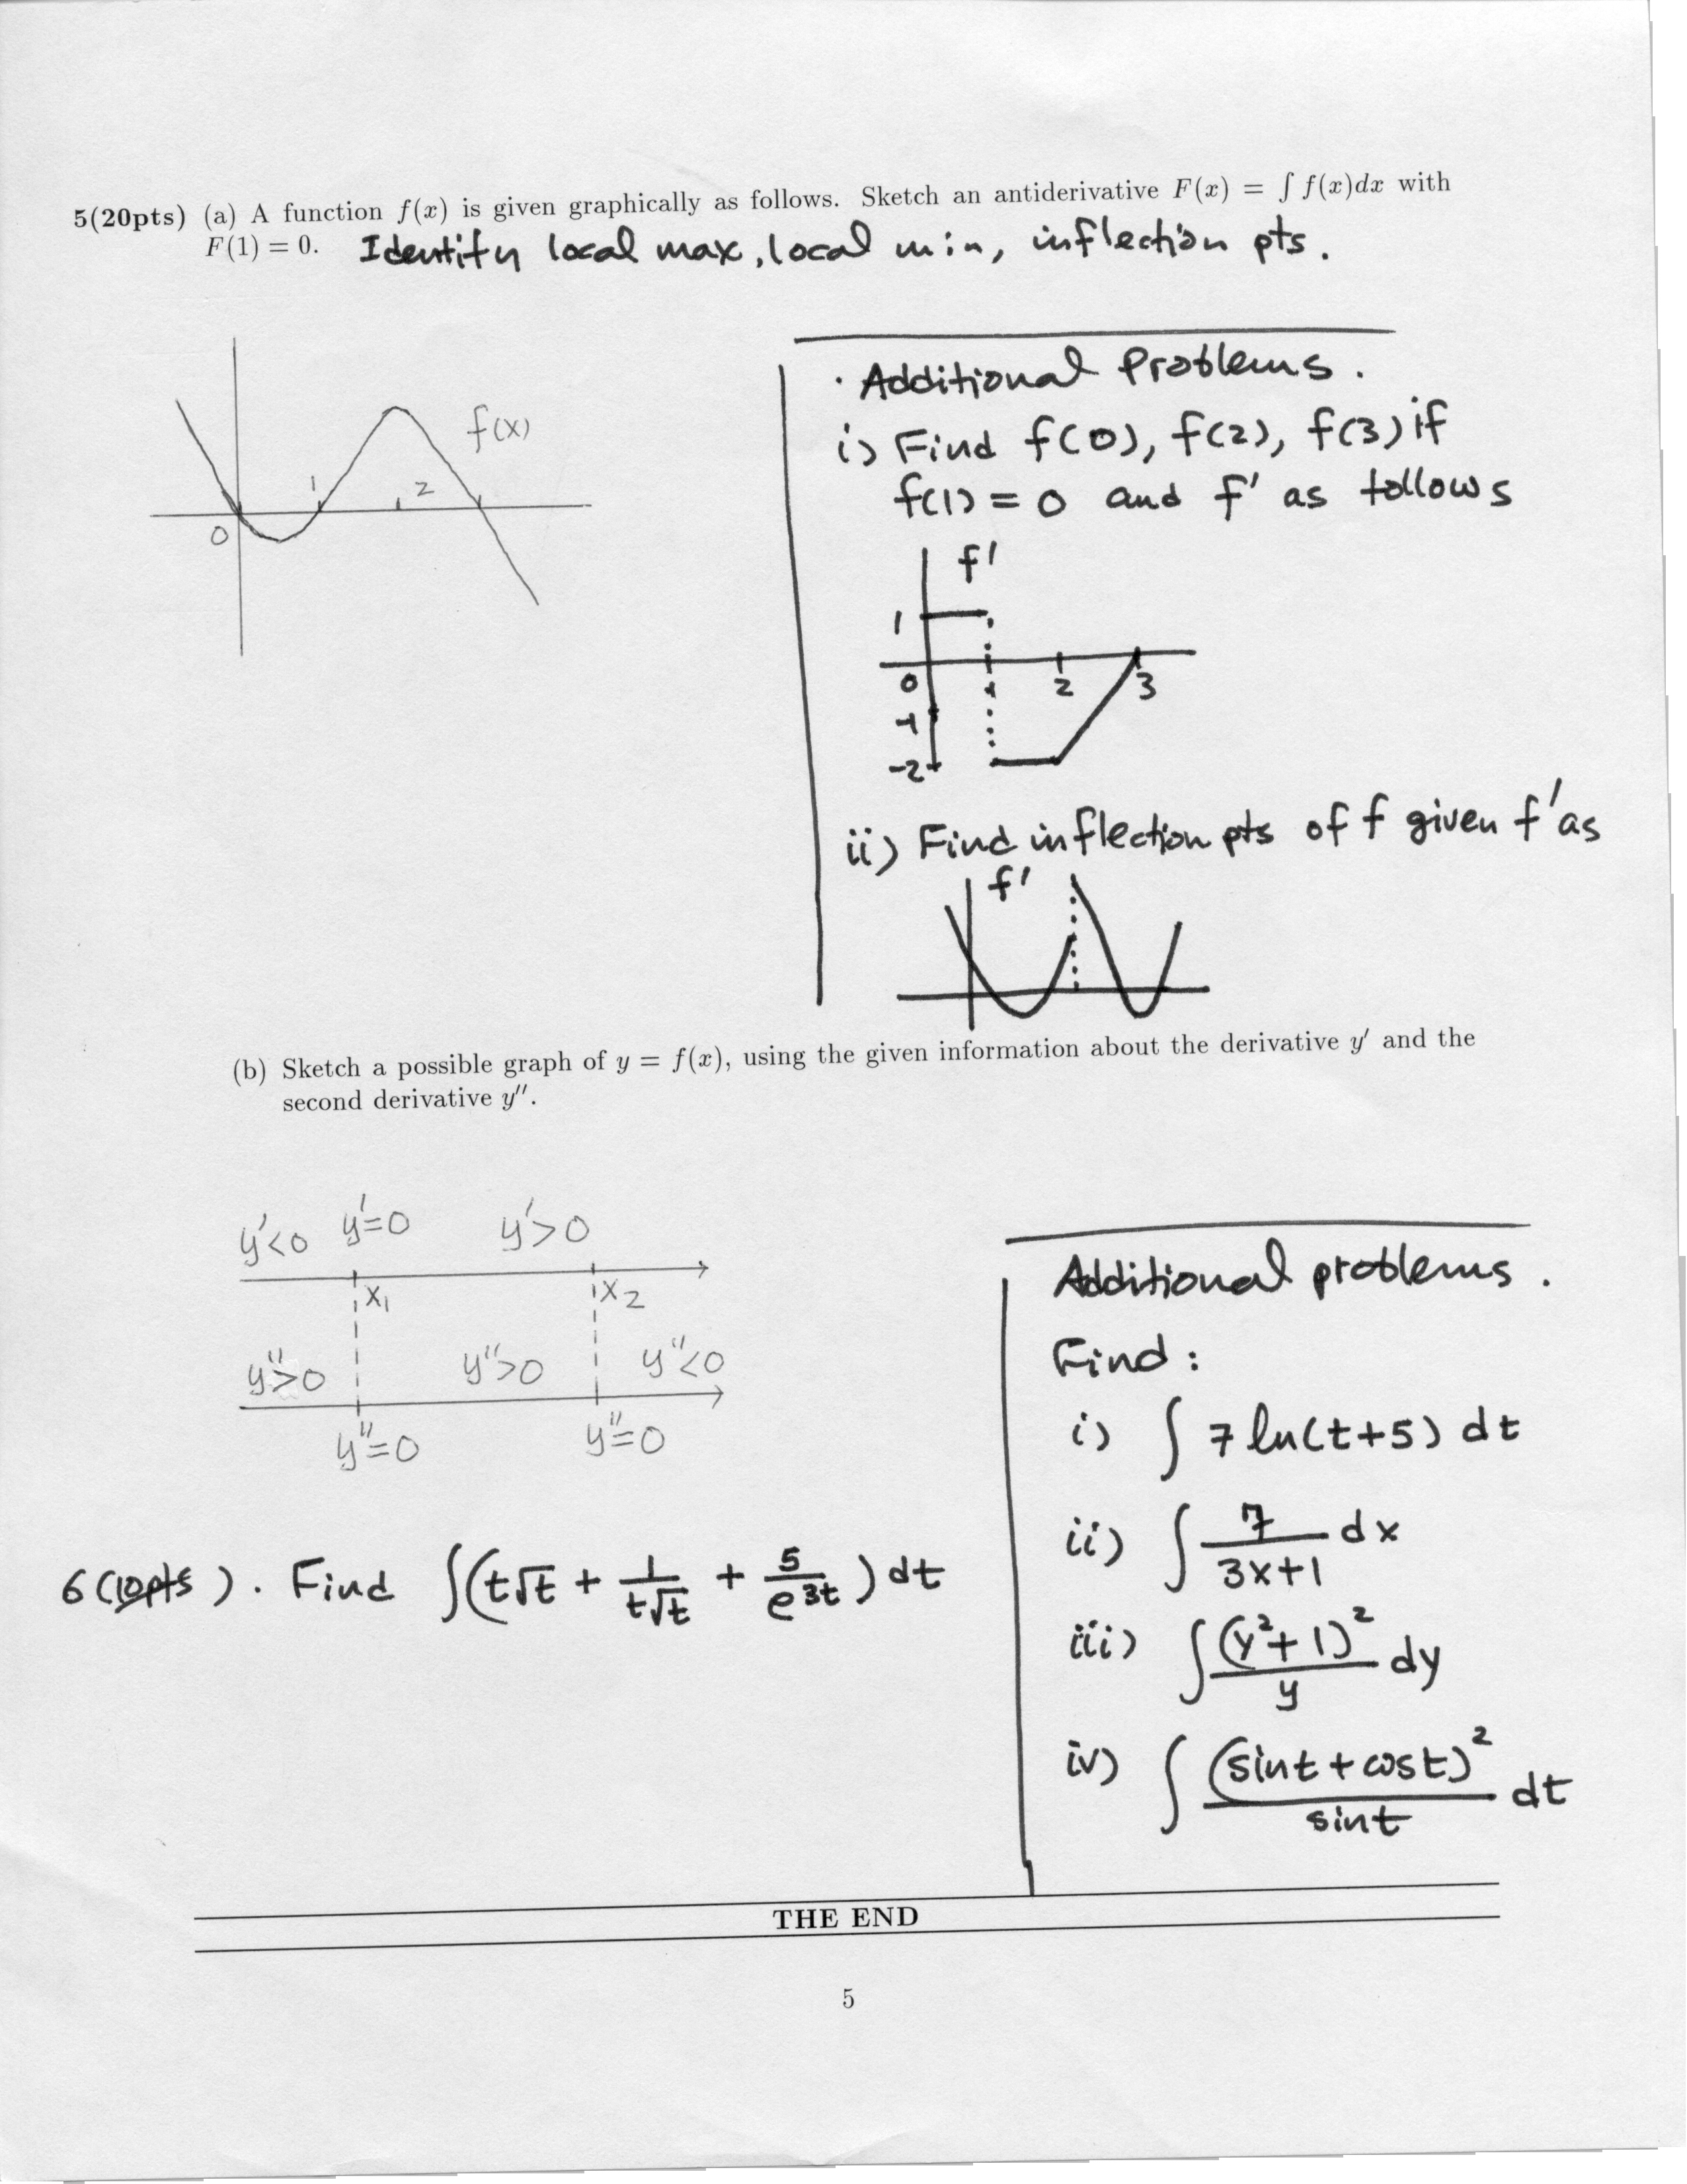 5(20pts) (a) A function f(x) is given graphically as follows. Sketch an antiderivative F(x) = ∫ f(x)dx with
F(1) = 0. Identify local max, local min, inflection pts.
f(x)
1
2
0
· Additional Problems.
i) Find f(0), f(2), f(3) if
f(1) = 0 and f' as follows
f'
1
0 1 2 3
-1
-2
ii) Find inflection pts of f given f' as
f'
(b) Sketch a possible graph of y = f(x), using the given information about the derivative y′ and the
second derivative y″.
y'<0 y'=0 y'>0
x₁ x₂
y''>0 y''>0 y''<0
y''=0 y''=0
6(10pts). Find ∫(t√t + 1/(t√t) + 5/e^(3t)) dt
Additional problems.
Find:
i) ∫ 7 ln(t+5) dt
ii) ∫ 7/(3x+1) dx
iii) ∫ (y²+1)²/y dy
iv) ∫ (sint + cost)²/sint dt
THE END
5